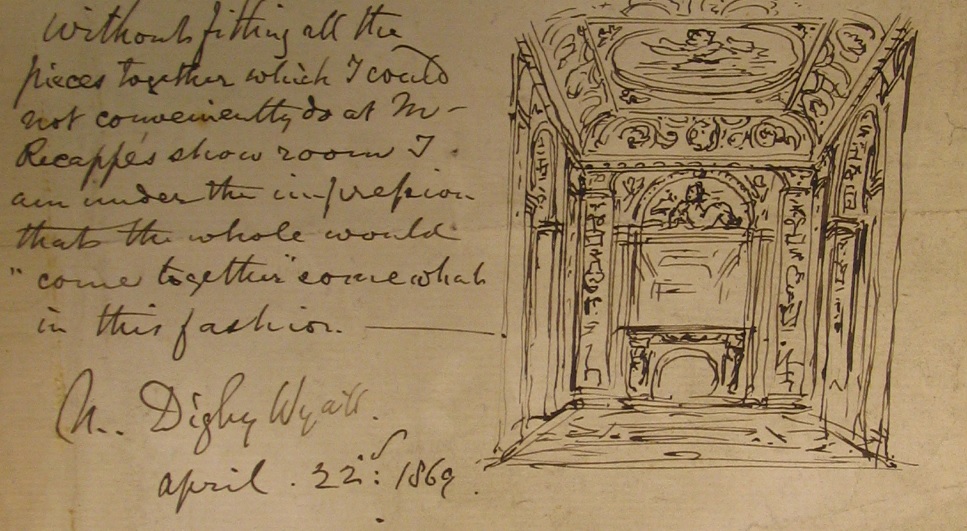 Without fitting all the
pieces together which I could
not conveniently do at Mr
Recappé's show room I
am under the impression
that the whole would
"come together" somewhat
in this fashion.
M. Digby Wyatt.
April. 22d: 1869.